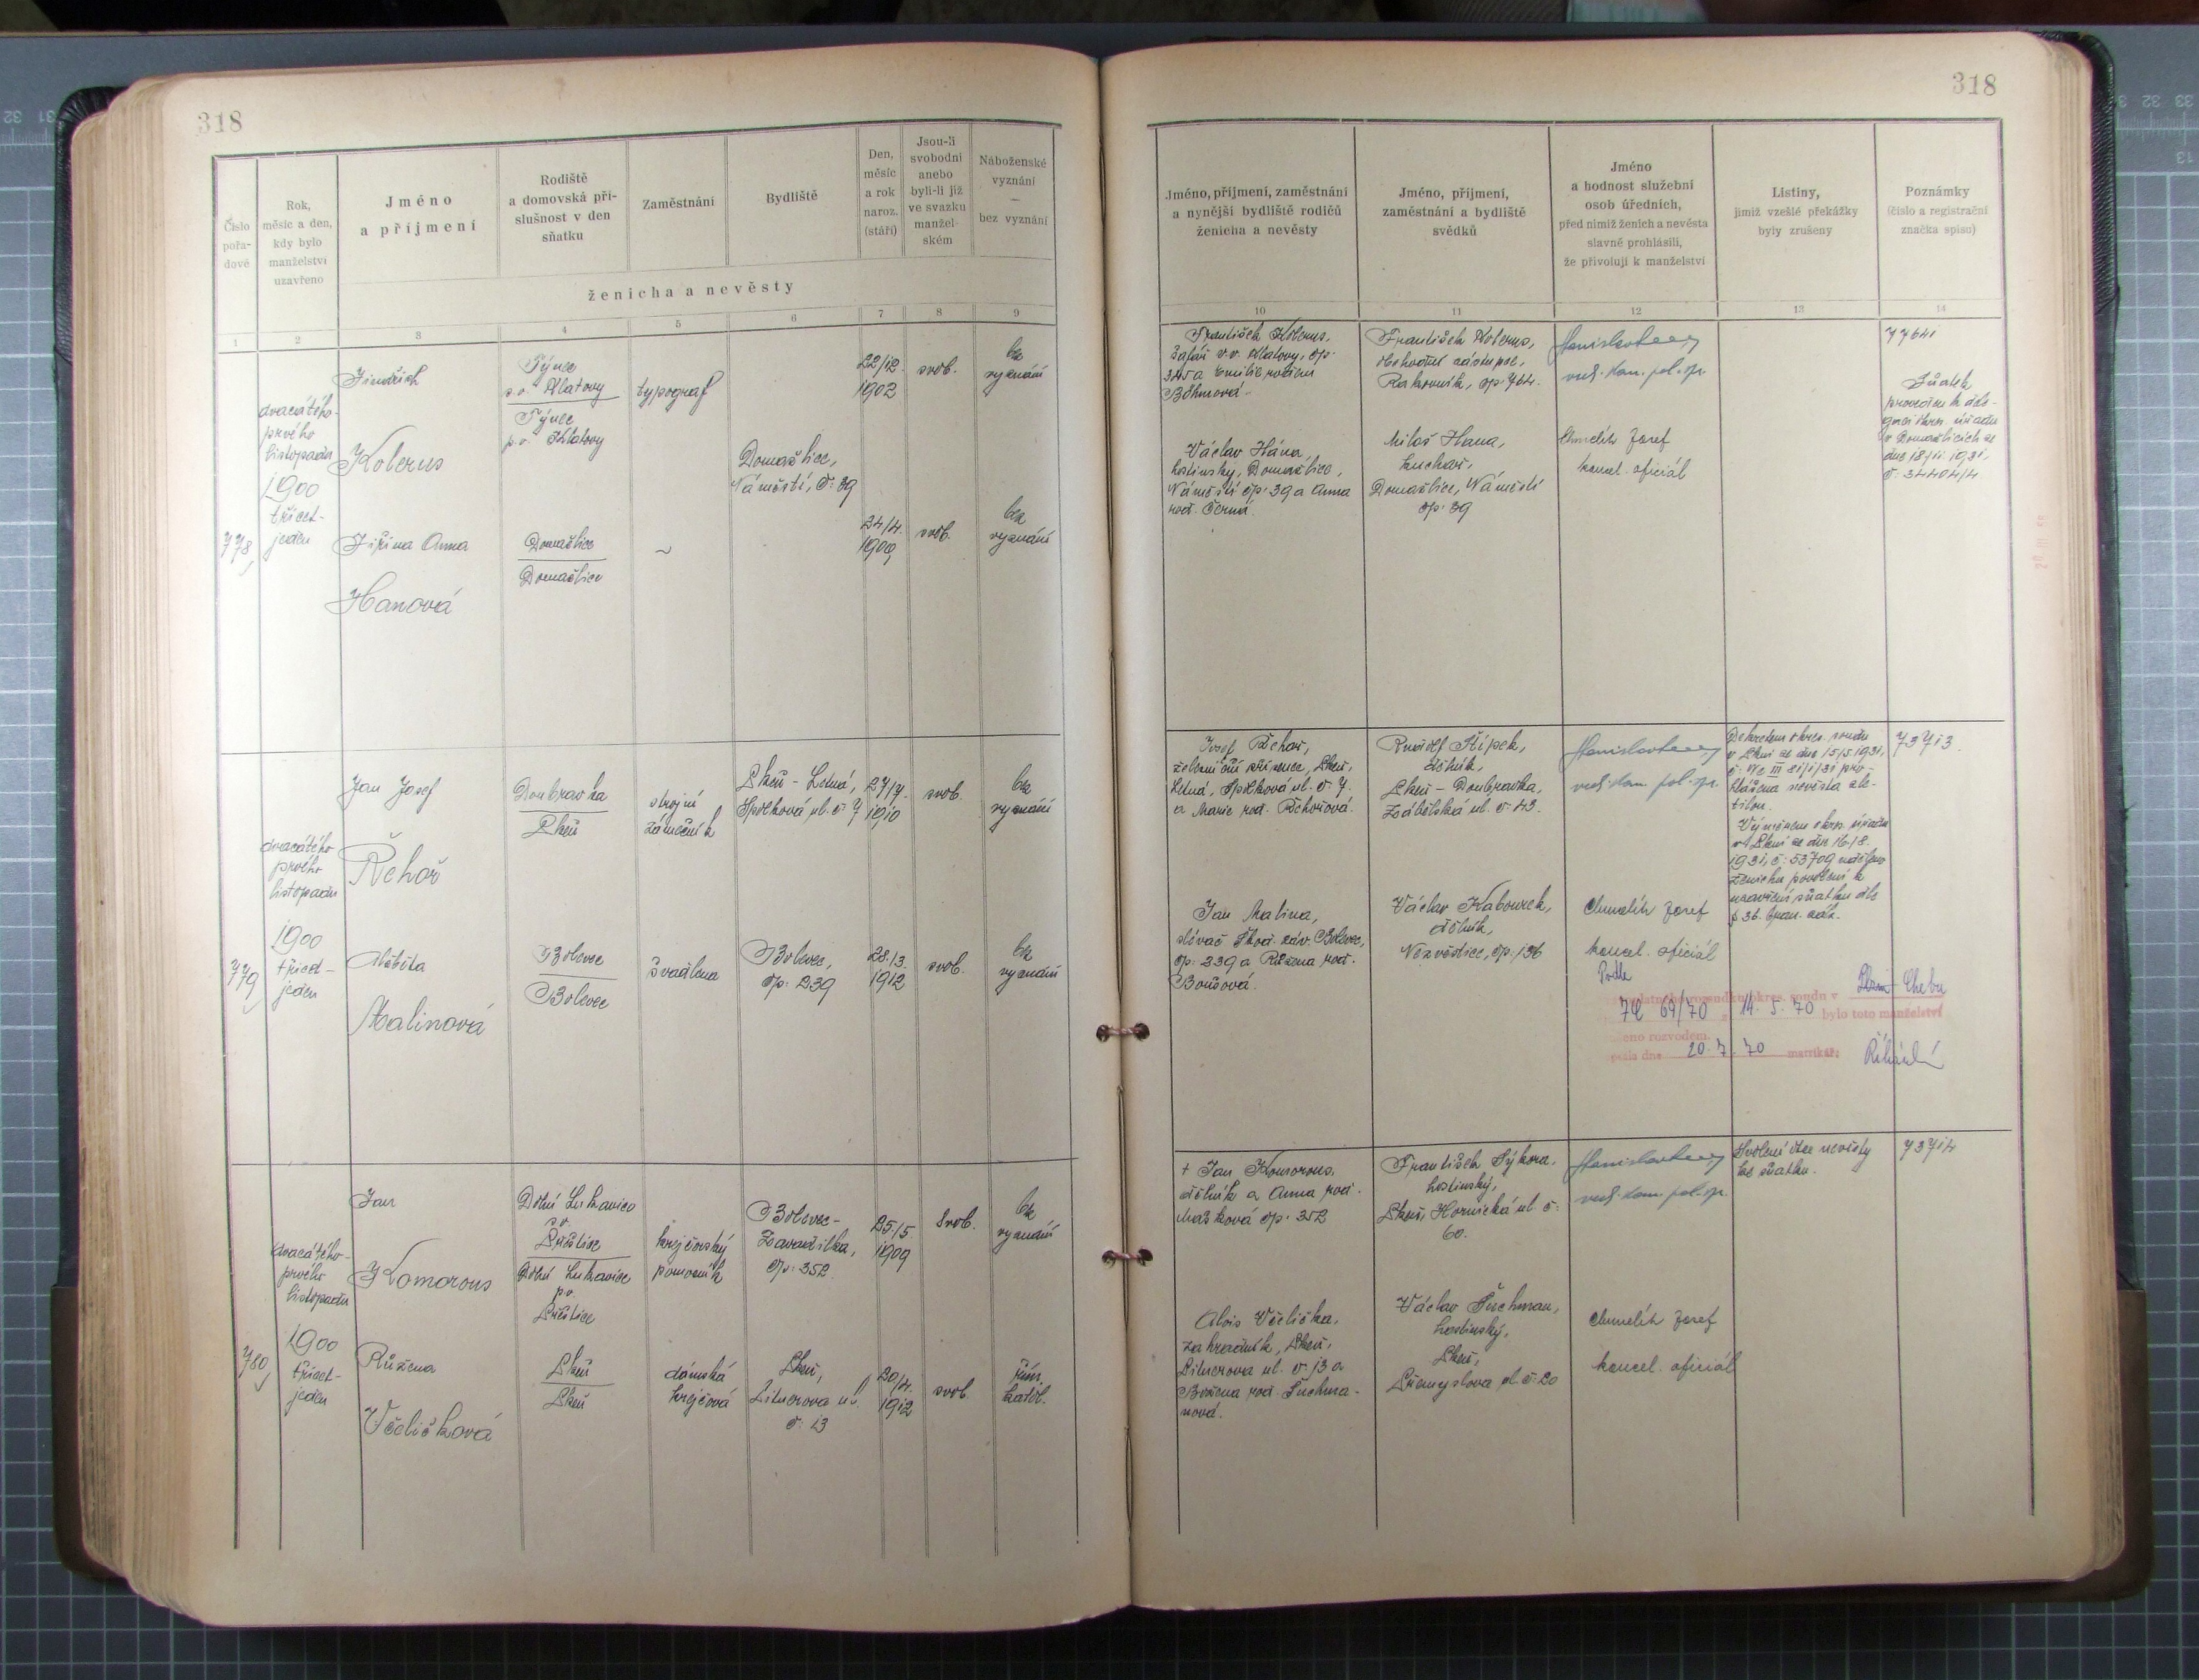 318
318
Číslo pořadové
Rok, měsíc a den, kdy bylo manželství uzavřeno
Jméno a příjmení
Rodiště a domovská příslušnost v den sňatku
Zaměstnání
Bydliště
Den, měsíc a rok naroz. (stáří)
Jsou-li svobodni anebo byli-li již ve svazku manželském
Náboženské vyznání — bez vyznání
ženicha a nevěsty
Jméno, příjmení, zaměstnání a nynější bydliště rodičů ženicha a nevěsty
Jméno, příjmení, zaměstnání a bydliště svědků
Jméno a hodnost služební osob úředních, před nimiž ženich a nevěsta slavně prohlásili, že přivolují k manželství
Listiny, jimiž vzešlé překážky byly zrušeny
Poznámky (číslo a registrační značka spisu)
1 2 3 4 5 6 7 8 9 10 11 12 13 14
778
dvacátého
prvého
listopadu
1900
třicet-
jeden
Jindřich
Koberus
Týnec
p.o. Klatovy
Týnec
p.o. Klatovy
typograf
Domažlice,
Náměstí, č. 39
22/12.
1902
svob.
bez
vyznání
Jiřina Anna
Hanová
Domažlice
Domažlice
~
24/4.
svob.
bez
vyznání
František Koberus,
šafář v. v. Klatovy, čp.
345 a Emilie rozená
Böhmová.
Václav Hána,
hostinský, Domažlice,
Náměstí čp. 39 a Anna
roz. Černá.
František Koberus,
obchodní zástupce,
Rakovník, čp. 764.
Miloš Hana,
kuchař,
Domažlice, Náměstí
čp. 39
Chmelík Josef
kancel. oficiál
77641
Sňatek
proveden k dele-
gaci okres. úřadu
v Domažlicích ze
dne 18/11. 1931,
č. 34404/4
779
dvacátého
prvého
listopadu
1900
třicet-
jeden
Jan Josef
Řehoř
Doubravka
Plzeň
strojní
zámečník
Plzeň - Letná,
Spolková ul. č. 7
27/7.
1910
svob.
bez
vyznání
Alžběta
Malinová
Bolevec
Bolevec
švadlena
Bolevec,
čp. 239
28./3.
1912
svob.
bez
vyznání
Josef Řehoř,
železniční zřízenec, Plzeň,
Letná, Spolková ul. č. 7.
a Marie roz. Řehořová.
Jan Malina,
slévač Škod. záv. Bolevec,
čp. 239 a Růžena roz.
Boušová.
Rudolf Hípek,
dělník,
Plzeň - Doubravka,
Zábělská ul. č. 43.
Václav Kabourek,
dělník,
Nezvěstice, čp. 136
Chmelík Josef
kancel. oficiál
Dekretem okres. soudu
v Plzni ze dne 15/5. 1931,
č. Nc III 21/1/31 pro-
hlášena nevěsta zle-
tilou.
Výměrem okres. úřadu
v Plzni ze dne 16/8.
1931, č. 53709 uděleno
ženichu povolení k
uzavření sňatku dle
§ 36. bran. zák.
73713.
Podle
okres. soudu v Plzni Chebu
7C 69/70 14. 5. 70 bylo toto manželství
rozvodem.
dne 20. 7. 70 matrikář:
780
dvacátého-
prvého
listopadu
1900
třicet-
jeden
Jan
Komorous
Dolní Lukavice
p.o.
Přeštice
Dolní Lukavice
p.o.
Přeštice
krejčovský
pomocník
Bolevec-
Zavadilka,
čp. 352.
25./5.
1909
svob.
bez
vyznání
Růžena
Včeličková
Plzeň
Plzeň
dámská
krejčová
Plzeň,
20/4.
1912
svob.
řím.
katol.
† Jan Komorous,
dělník a Anna roz.
Mašková čp. 352
Alois Včelička,
zahradník, Plzeň,
Božena roz. Suchma-
nová.
František Sýkora,
hostinský,
Plzeň, Hornická ul. č.
60.
Václav Suchman,
hostinský,
Plzeň,
Přemyslova ul. č. 20
Chmelík Josef
kancel. oficiál
Svolení otce nevěsty
ke sňatku.
73714